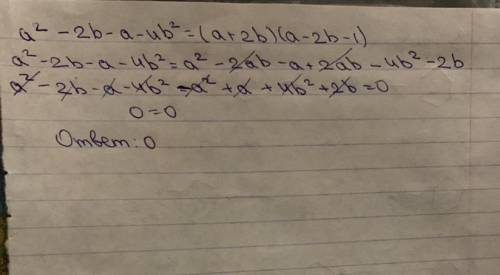 a² - 2b - a - 4b² = (a+2b)(a-2b-1)
a² - 2b - a - 4b² = a² - 2ab - a + 2ab - 4b² - 2b
a² - 2b - a - 4b² - a² + a + 4b² + 2b = 0
0 = 0
Ответ: 0